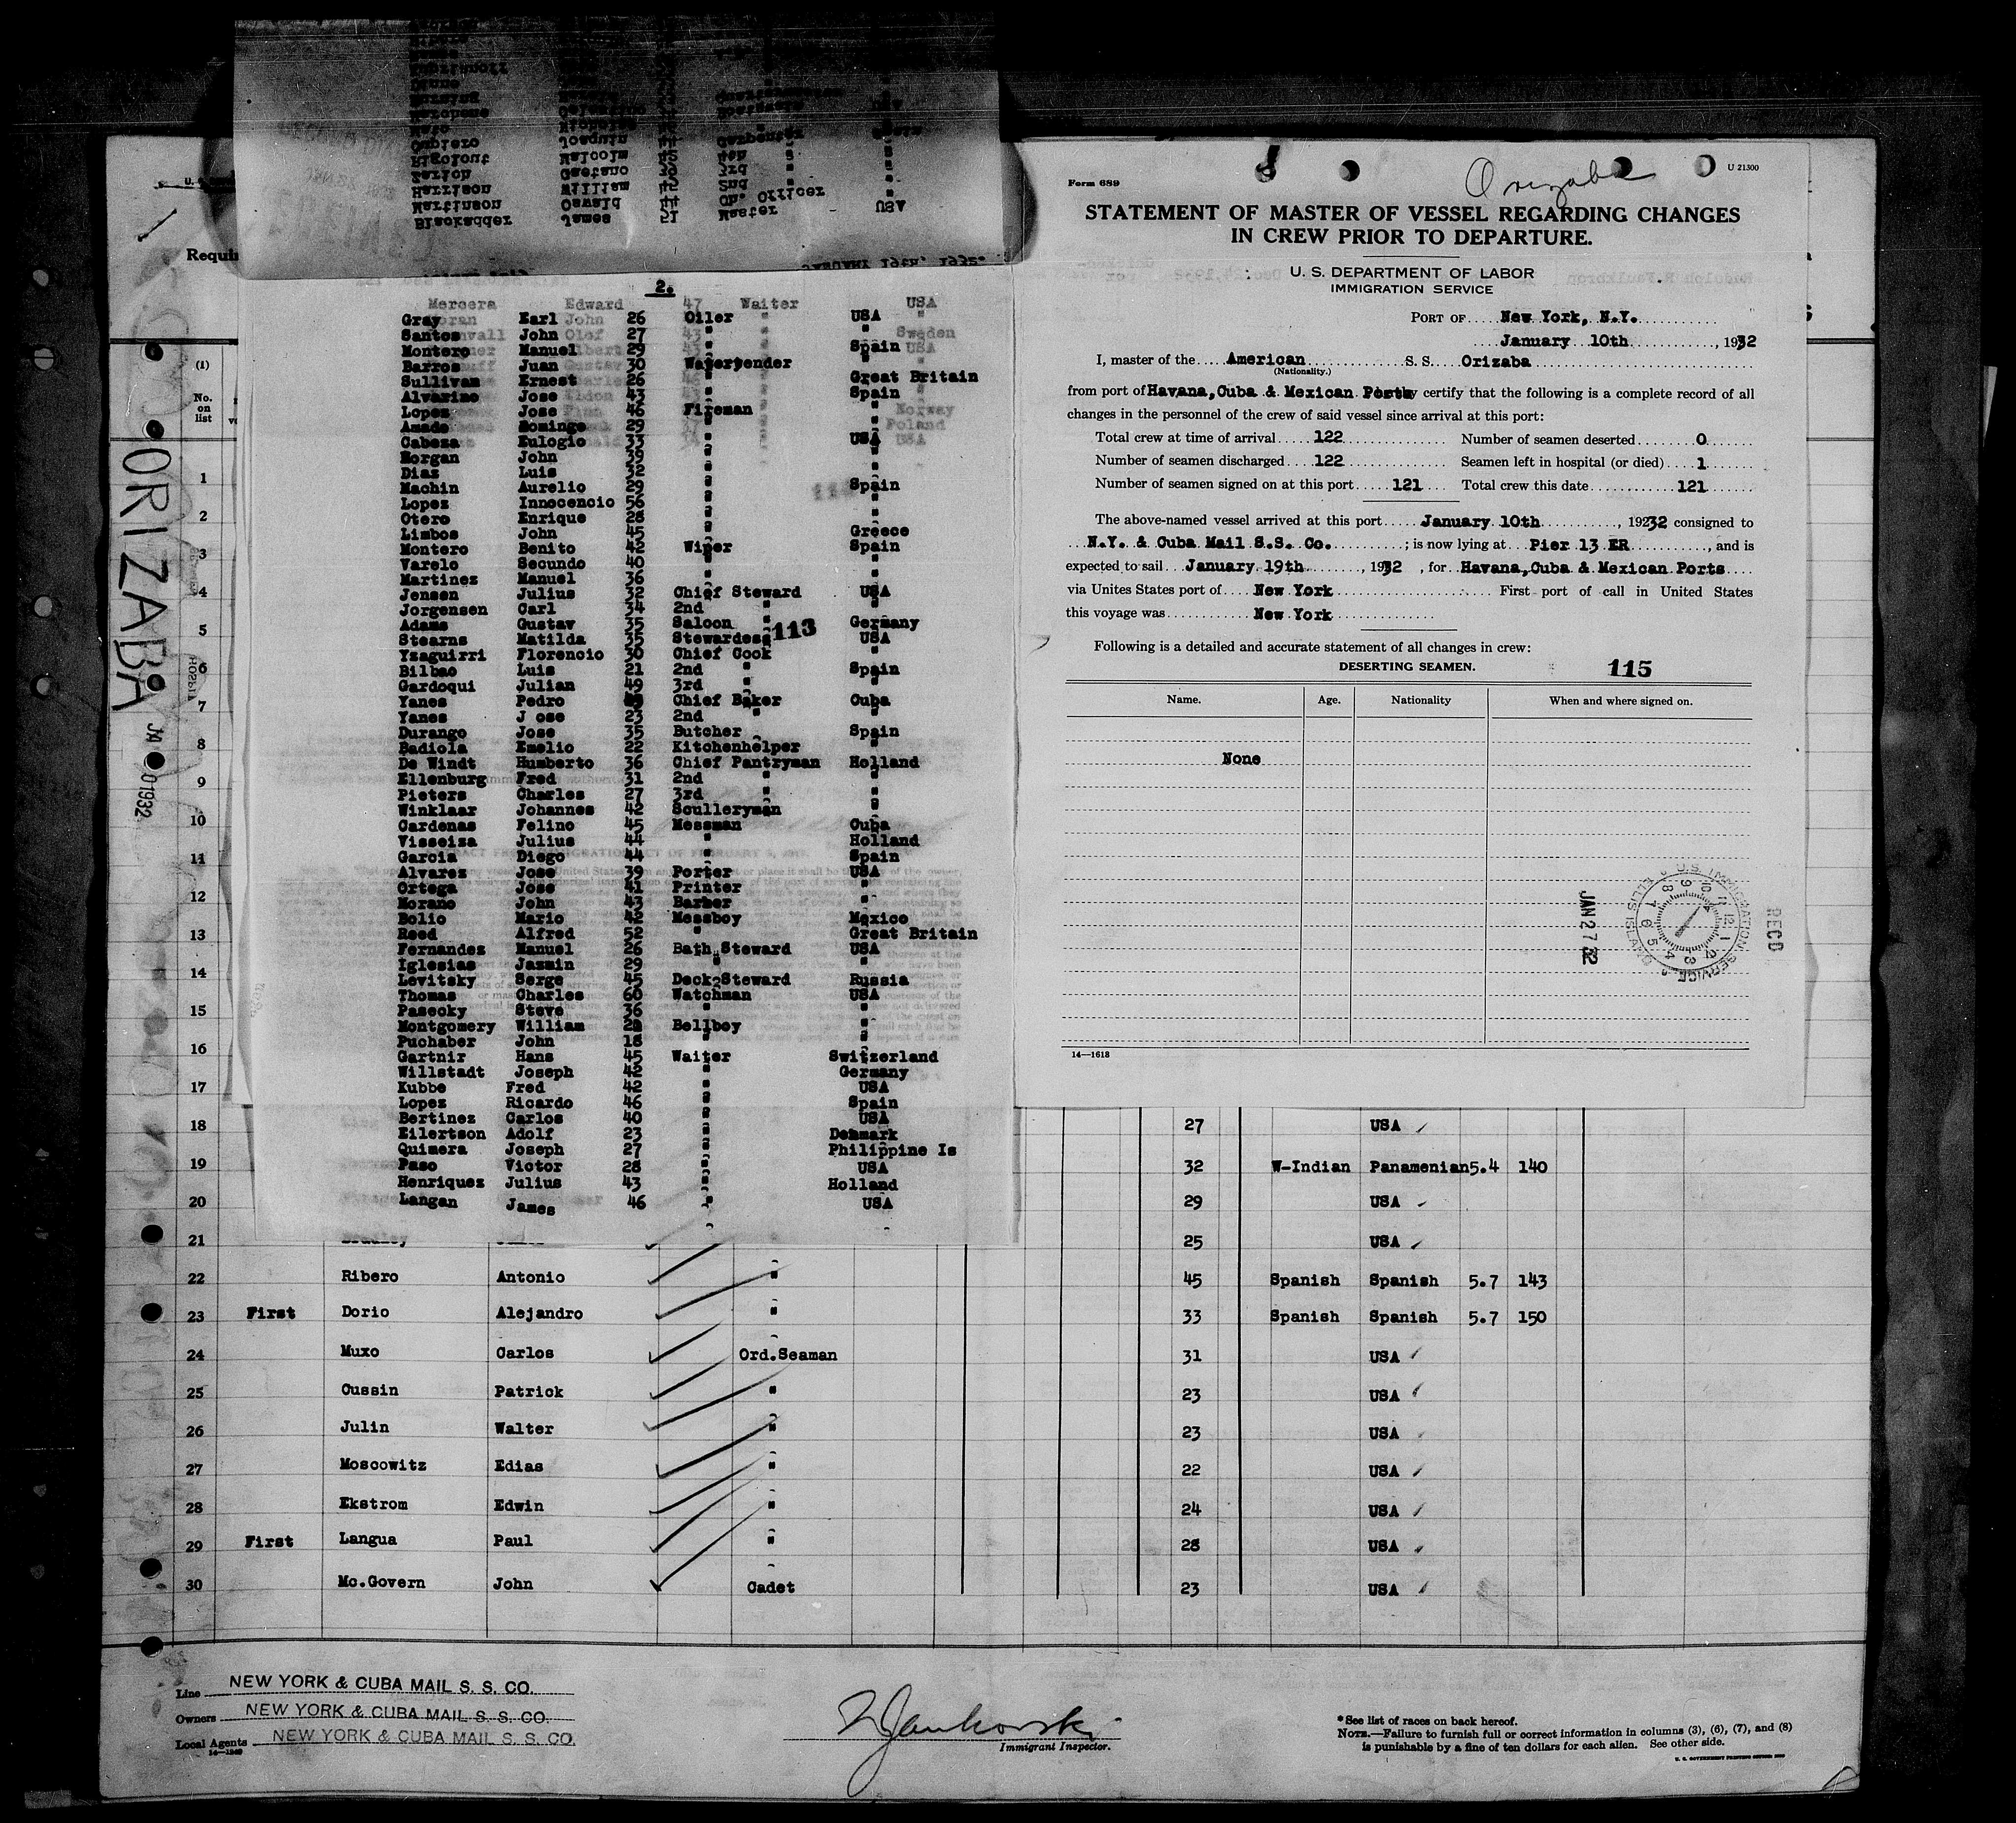 Blackadder James 51 Master USA
Martinson Oswald 44 Ch. Officer "
Harrison William 42 2nd "
Gaetano 3rd "
Rigolout Malcolm 4th "
Cubiero Joaquin Carpenter
2.
Mercera Edward 47 Waiter USA
Gray Earl 26 Oiler USA
Santos John 27 " "
Montero Manuel 29 " Spain
Barros Juan 30 Watertender "
Sullivan Ernest 26 " Great Britain
Alvarine Jose 43 " Spain
Lopez Jose 46 Fireman "
Amado Domingo 29 " "
Cabeza Eulogio 33 " USA
Morgan John 39 " "
Diaz Luis 32 " "
Machin Aurelio 29 " Spain
Lopez Innocencio 56 " "
Otero Enrique 28 " "
Limbos John 45 " Greece
Montero Benito 42 Wiper Spain
Varelo Secundo 40 " "
Martinez Manuel 36 " "
Jensen Julius 32 Chief Steward USA
Jorgensen Carl 34 2nd " "
Adams Gustav 35 Saloon " Germany
Stearns Matilda 35 Stewardess USA
113
Yzaguirri Florencio 30 Chief Cook "
Bilbao Luis 21 2nd " Spain
Gardoqui Julian 49 3rd " "
Yanes Pedro Chief Baker Cuba
Yanes J ose 23 2nd " "
Durango Jose 35 Butcher Spain
Badiola Emelio 22 Kitchenhelper "
De Windt Humberto 36 Chief Pantryman Holland
Ellenburg Fred 31 2nd " "
Pieters Charles 27 3rd " "
Winklaar Johannes 42 Sculleryman "
Cardenas Felino 45 Messman Cuba
Visseiza Julius 44 " Holland
Garcia Diego 44 " Spain
Alvarez Jose 39 Porter USA
Ortega Jose 41 Printer "
Morano John 43 Barber "
Bolio Mario 42 Messboy Mexico
Reed Alfred 52 " Great Britain
Fernandez Manuel 26 Bath Steward USA
Iglesias Jazmin 29 " "
Levitsky Serge 45 Deck Steward Russia
Thomas Charles 60 Watchman USA
Pasecky Steve 36 " "
Montgomery William Bellboy "
Puchaber John 18 " "
Gartnir Hans 45 Waiter Switzerland
Willstadt Joseph 42 " Germany
Kubbe Fred 42 " USA
Lopez Ricardo 46 " Spain
Bertinez Carlos 40 " USA
Eilertson Adolf 23 " Denmark
Quimera Joseph 27 " Philippine Is
Paso Victor 28 " USA
Henriquez Julius 43 " Holland
Langan James 46 " USA
Form 689
Orizaba
U 21300
STATEMENT OF MASTER OF VESSEL REGARDING CHANGES
IN CREW PRIOR TO DEPARTURE.
U. S. DEPARTMENT OF LABOR
IMMIGRATION SERVICE
PORT OF New York, N.Y.
January 10th, 1932
I, master of the American S. S. Orizaba
(Nationality.)
from port of Havana, Cuba & Mexican Ports certify that the following is a complete record of all
changes in the personnel of the crew of said vessel since arrival at this port:
Total crew at time of arrival 122 Number of seamen deserted 0
Number of seamen discharged 122 Seamen left in hospital (or died) 1
Number of seamen signed on at this port 121 Total crew this date 121
The above-named vessel arrived at this port January 10th, 1932 consigned to
N.Y. & Cuba Mail S.S. Co. ; is now lying at Pier 13 ER, and is
expected to sail January 19th, 1932, for Havana, Cuba & Mexican Ports
via Unites States port of New York First port of call in United States
this voyage was New York
Following is a detailed and accurate statement of all changes in crew:
DESERTING SEAMEN. 115
Name. Age. Nationality When and where signed on.
None
RECD
JAN 27 32
IMMIGRATION SERVICE
ELLIS ISLAND
14—1618
ORIZABA
JA 01932
Requi
(1)
No.
on
list
1
2
3
4
5
6
7
8
9
10
11
12
13
14
15
16
17
18 27 USA
19 32 W-Indian Panamenian 5.4 140
20 29 USA
21 25 USA
22 Ribero Antonio " 45 Spanish Spanish 5.7 143
23 First Dorio Alejandro " 33 Spanish Spanish 5.7 150
24 Muxo Carlos Ord.Seaman 31 USA
25 Cussin Patrick " 23 USA
26 Julin Walter " 23 USA
27 Moscowitz Edias " 22 USA
28 Ekstrom Edwin " 24 USA
29 First Langua Paul " 28 USA
30 Mc.Govern John Cadet 23 USA
Line NEW YORK & CUBA MAIL S. S. CO.
Owners NEW YORK & CUBA MAIL S. S. CO.
Local Agents NEW YORK & CUBA MAIL S. S. CO.
14—1240
Immigrant Inspector.
*See list of races on back hereof.
NOTE.—Failure to furnish full or correct information in columns (3), (6), (7), and (8)
is punishable by a fine of ten dollars for each alien. See other side.
U. S. GOVERNMENT PRINTING OFFICE